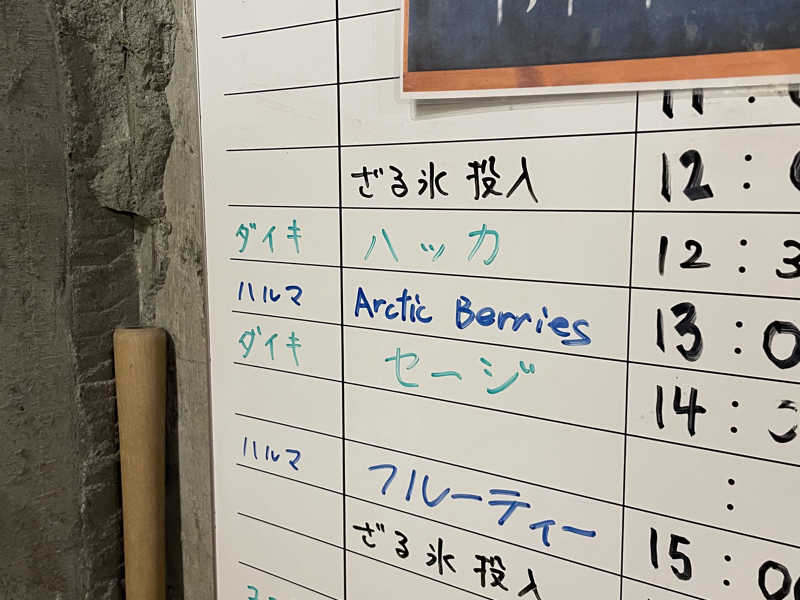 ざる氷 投入 12:
ダイキ ハッカ 12:3
ハルマ Arctic Berries 13:0
ダイキ セージ 14:
:
ハルマ フルーティー 15:00
ざる氷 投入